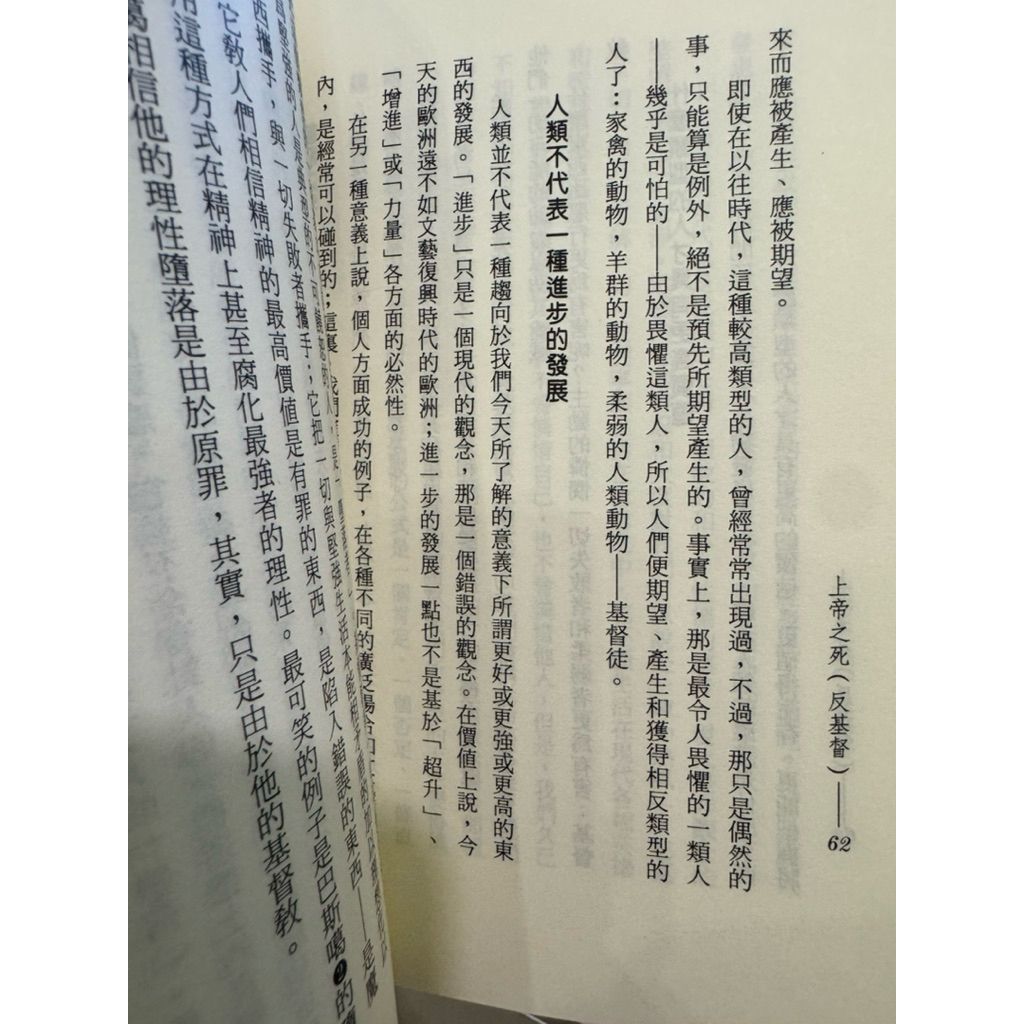 上帝之死（反基督）——62
來而應被產生、應被期望。
即使在以往時代，這種較高類型的人，曾經常常出現過，不過，那只是偶然的
事，只能算是例外，絕不是預先所期望產生的。事實上，那是最令人畏懼的一類人
——幾乎是可怕的——由於畏懼這類人，所以人們便期望、產生和獲得相反類型的
人了：家禽的動物，羊群的動物，柔弱的人類動物——基督徒。
人類不代表一種進步的發展
人類並不代表一種趨向於我們今天所了解的意義下所謂更好或更強或更高的東
西的發展。「進步」只是一個現代的觀念，那是一個錯誤的觀念。在價值上說，今
天的歐洲遠不如文藝復興時代的歐洲；進一步的發展一點也不是基於「超升」、
「增進」或「力量」各方面的必然性。
在另一種意義上說，個人方面成功的例子，在各種不同的廣泛場合
內，是經常可以碰到的；這裏
西攜手，與一切失敗者攜手；它把一切與堅強生活本能相
它教人們相信精神的最高價值是有罪的東西，是陷入錯誤的東西——是魔
用這種方式在精神上甚至腐化最強者的理性。最可笑的例子是巴斯噶❷的
相信他的理性墮落是由於原罪，其實，只是由於他的基督教。